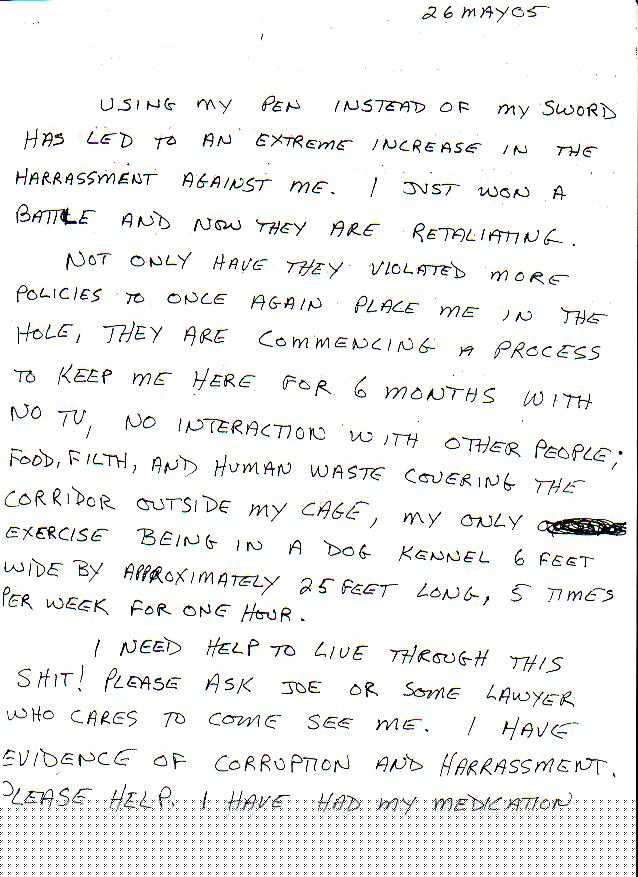 26 MAY 05
USING MY PEN INSTEAD OF MY SWORD
HAS LED TO AN EXTREME INCREASE IN THE
HARRASSMENT AGAINST ME. I JUST WON A
BATTLE AND NOW THEY ARE RETALIATING.
NOT ONLY HAVE THEY VIOLATED MORE
POLICIES TO ONCE AGAIN PLACE ME IN THE
HOLE, THEY ARE COMMENCING A PROCESS
TO KEEP ME HERE FOR 6 MONTHS WITH
NO TV, NO INTERACTION WITH OTHER PEOPLE;
FOOD, FILTH, AND HUMAN WASTE COVERING THE
CORRIDOR OUTSIDE MY CAGE, MY ONLY
EXERCISE BEING IN A DOG KENNEL 6 FEET
WIDE BY APPROXIMATELY 25 FEET LONG, 5 TIMES
PER WEEK FOR ONE HOUR.
I NEED HELP TO LIVE THROUGH THIS
SHIT! PLEASE ASK JOE OR SOME LAWYER
WHO CARES TO COME SEE ME. I HAVE
EVIDENCE OF CORRUPTION AND HARRASSMENT.
PLEASE HELP. I HAVE HAD MY MEDICATION